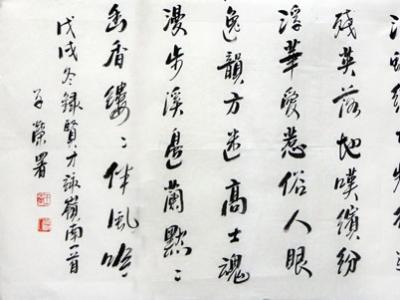 残英落地嘆繽紛
浮華爱惹俗人眼
逸韻方迷高士魂
漫步溪邊蘭點:
幽香縷:伴風吟
戊戌冬録賢才詠嶺南一首
子榮署